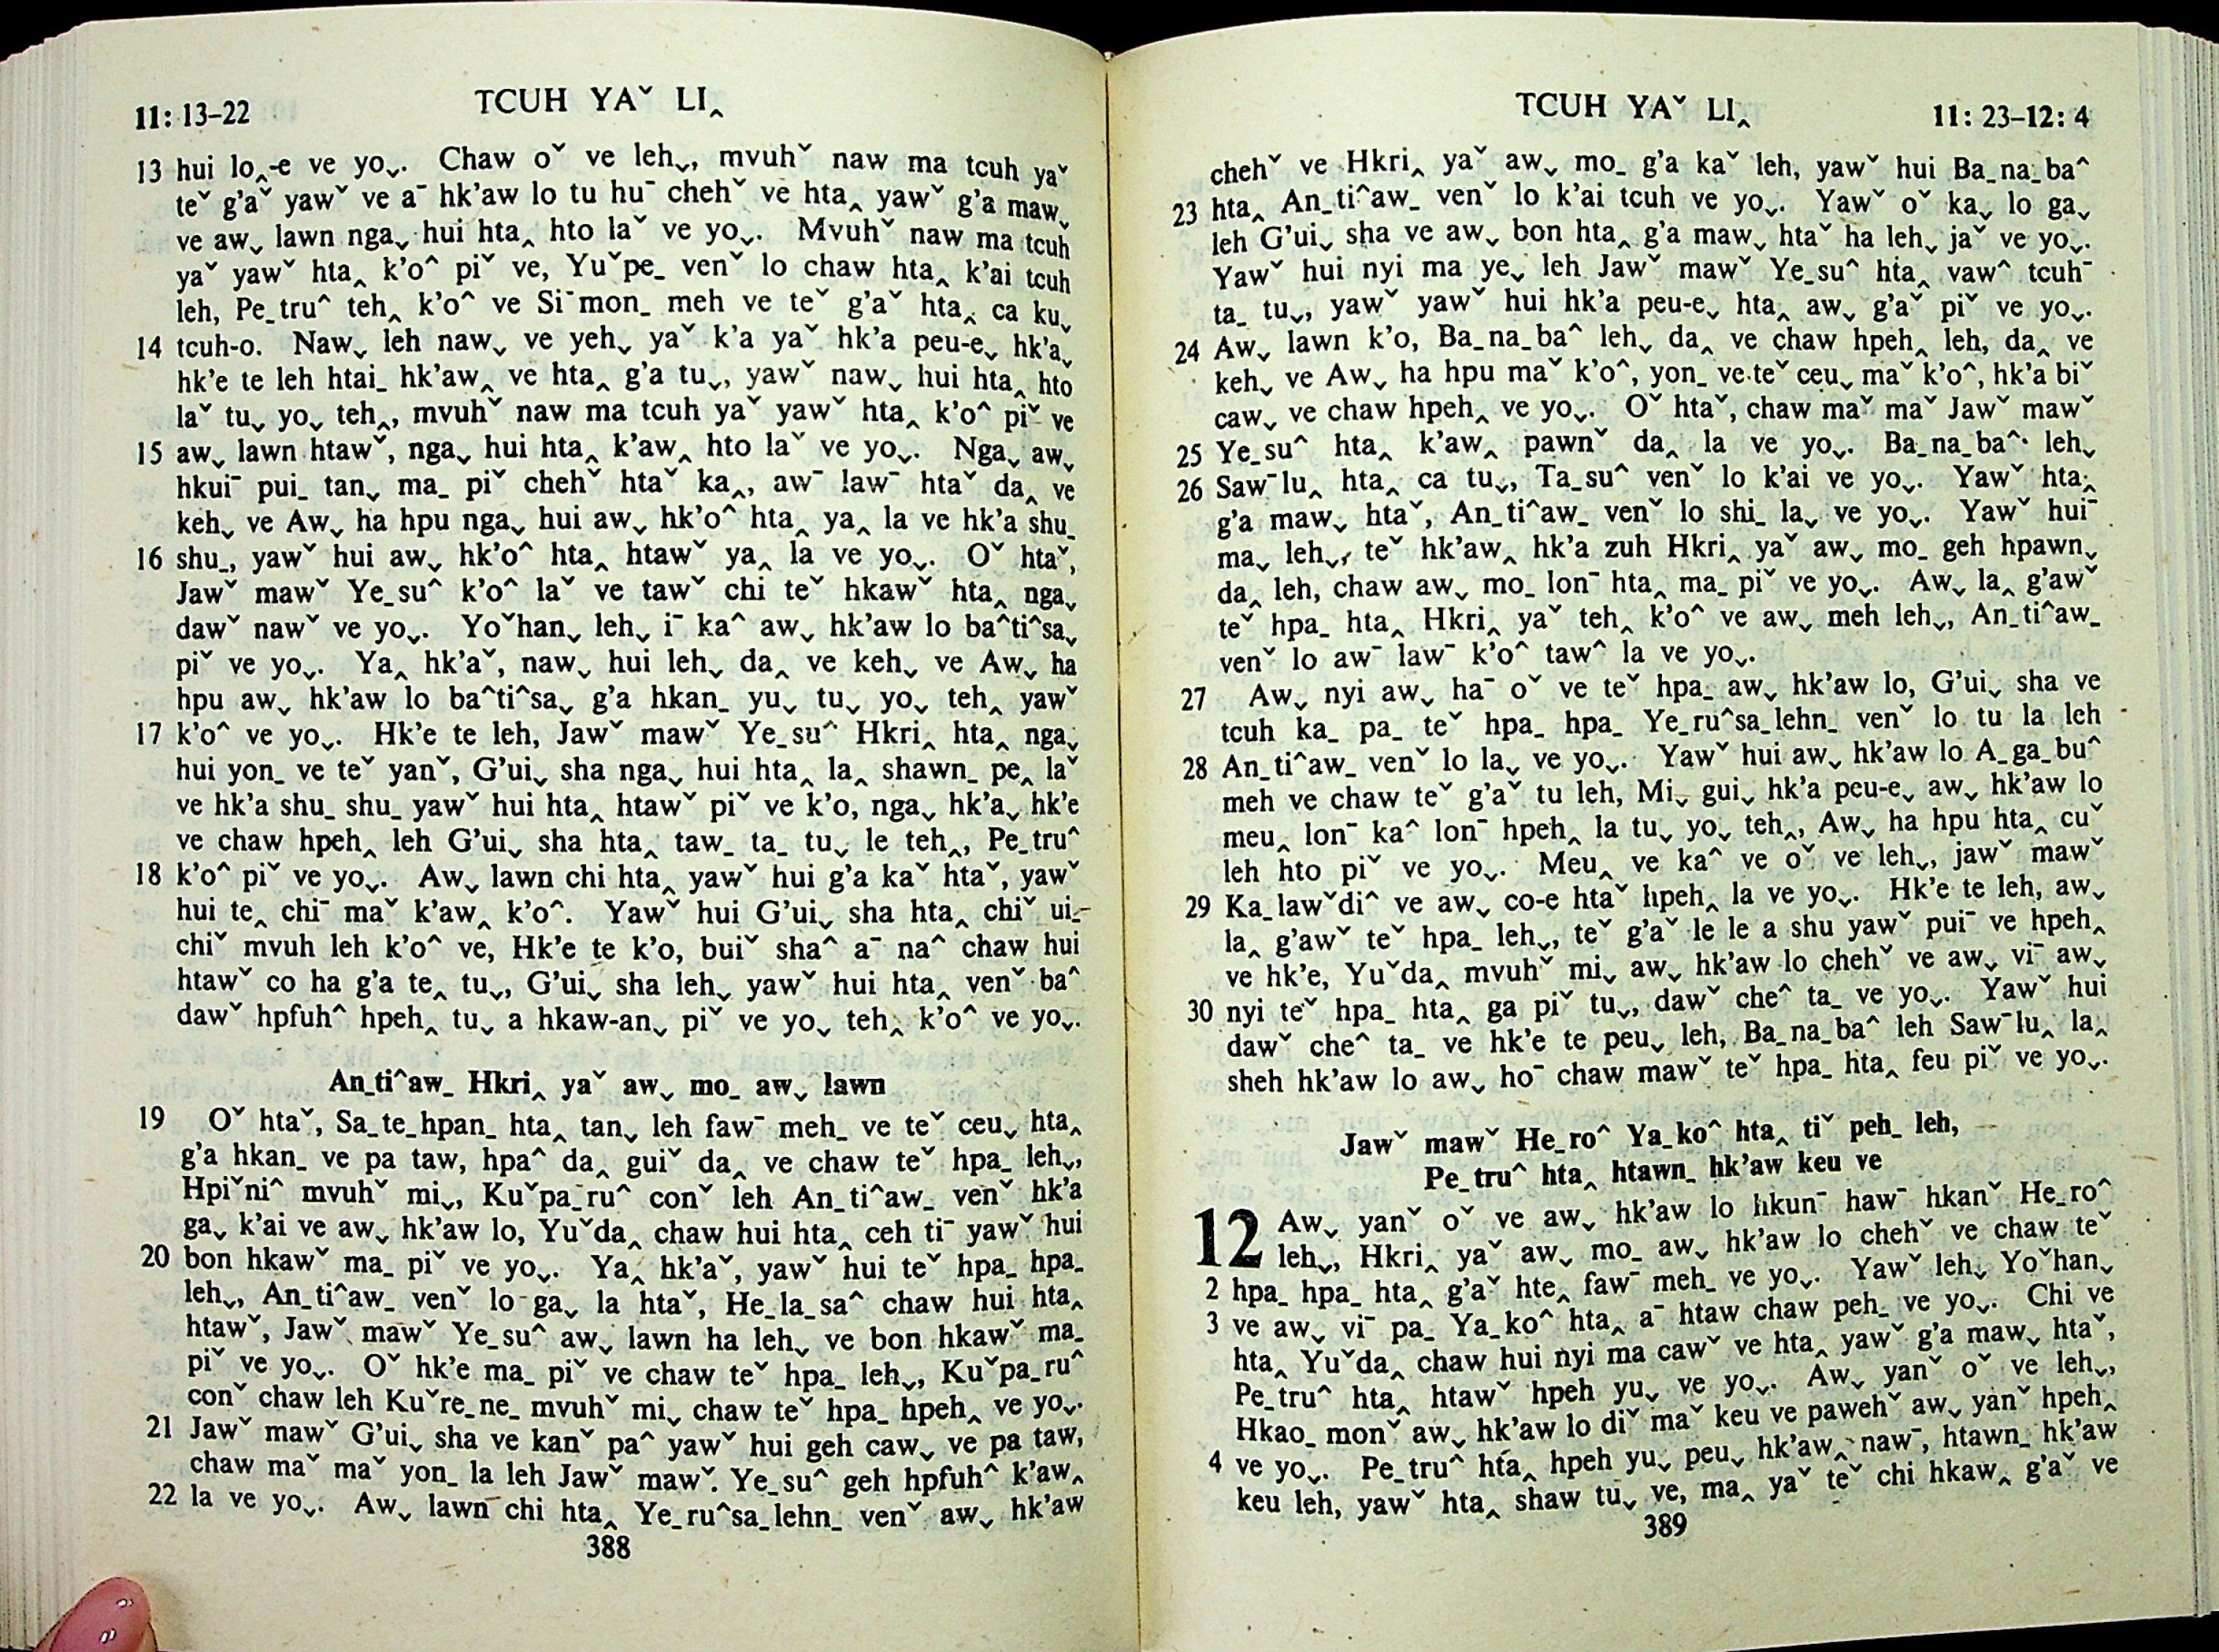 11: 13–22
TCUH YAˇ LI‸
13 hui lo‸-e ve yoˬ. Chaw oˇ ve lehˬ, mvuhˇ naw ma tcuh yaˇ
teˇ g’aˇ yawˇ ve aˉ hk’aw lo tu huˉ chehˇ ve hta‸ yawˇ g’a mawˬ
ve awˬ lawn ngaˬ hui hta‸ hto laˇ ve yoˬ. Mvuhˇ naw ma tcuh
yaˇ yawˇ hta‸ k’o^ piˇ ve, Yuˇpe_ venˇ lo chaw hta‸ k’ai tcuh
leh, Pe_tru^ teh‸ k’o^ ve Siˉmon_ meh ve teˇ g’aˇ hta‸ ca kuˬ
14 tcuh-o. Nawˬ leh nawˬ ve yehˬ yaˇ k’a yaˇ hk’a peu-eˬ hk’aˬ
hk’e te leh htai_ hk’aw‸ ve hta‸ g’a tuˬ, yawˇ nawˬ hui hta‸ hto
laˇ tuˬ yoˬ teh‸, mvuhˇ naw ma tcuh yaˇ yawˇ hta‸ k’o^ piˇ ve
15 awˬ lawn htawˇ, ngaˬ hui hta‸ k’aw‸ hto laˇ ve yoˬ. Ngaˬ awˬ
hkuiˉ pui_ tanˬ ma_ piˇ chehˇ htaˇ ka‸, awˉ lawˉ htaˇ da‸ ve
kehˬ ve Awˬ ha hpu ngaˬ hui awˬ hk’o^ hta‸ ya‸ la ve hk’a shu_
16 shu_, yawˇ hui awˬ hk’o^ hta‸ htawˇ ya‸ la ve yoˬ. Oˇ htaˇ,
Jawˇ mawˇ Ye_su^ k’o^ laˇ ve tawˇ chi teˇ hkawˇ hta‸ ngaˬ
dawˇ nawˇ ve yoˬ. Yoˇhanˬ leh‸ iˉ ka^ awˬ hk’aw lo ba^ti^saˬ
piˇ ve yoˬ. Ya‸ hk’aˇ, nawˬ hui lehˬ da‸ ve kehˬ ve Awˬ ha
hpu awˬ hk’aw lo ba^ti^saˬ g’a hkan_ yuˬ tuˬ yoˬ teh‸ yawˇ
17 k’o^ ve yoˬ. Hk’e te leh, Jawˇ mawˇ Ye_su^ Hkri‸ hta‸ ngaˬ
hui yon_ ve teˇ yanˇ, G’uiˬ sha ngaˬ hui hta‸ la‸ shawn_ pe‸ laˇ
ve hk’a shu_ shu_ yawˇ hui hta‸ htawˇ piˇ ve k’o, ngaˬ hk’aˬ hk’e
ve chaw hpeh‸ leh G’uiˬ sha hta‸ taw_ ta_ tuˬ le teh‸, Pe_tru^
18 k’o^ piˇ ve yoˬ. Awˬ lawn chi hta‸ yawˇ hui g’a kaˇ htaˇ, yawˇ
hui te‸ chiˉ maˇ k’aw‸ k’o^. Yawˇ hui G’uiˬ sha hta‸ chiˇ ui_-
chiˇ mvuh leh k’o^ ve, Hk’e te k’o, buiˇ sha^ aˉ na^ chaw hui
htawˇ co ha g’a te‸ tuˬ, G’uiˬ sha lehˬ yawˇ hui hta‸ venˇ ba^
dawˇ hpfuh^ hpeh‸ tuˬ a hkaw-anˬ piˇ ve yoˬ teh‸ k’o^ ve yoˬ.
An_ti^aw_ Hkri‸ yaˇ awˬ mo_ awˬ lawn
19 Oˇ htaˇ, Sa_te_hpan_ hta‸ tanˬ leh fawˉ meh_ ve teˇ ceuˬ hta‸
g’a hkan_ ve pa taw, hpa^ da‸ guiˇ da‸ ve chaw teˇ hpa_ lehˬ,
Hpiˇni^ mvuhˇ miˬ, Kuˇpa_ru^ conˇ leh An_ti^aw_ venˇ hk’a
gaˬ k’ai ve awˬ hk’aw lo, Yuˇda‸ chaw hui hta‸ ceh tiˉ yawˇ hui
20 bon hkawˇ ma_ piˇ ve yoˬ. Ya‸ hk’aˇ, yawˇ hui teˇ hpa_ hpa_
lehˬ, An_ti^aw_ venˇ lo gaˬ la htaˇ, He_la_sa^ chaw hui hta‸
htawˇ, Jawˇ mawˇ Ye_su^ awˬ lawn ha lehˬ ve bon hkawˇ ma_
piˇ ve yoˬ. Oˇ hk’e ma_ piˇ ve chaw teˇ hpa_ lehˬ, Kuˇpa_ru^
conˇ chaw leh Kuˇre_ne_ mvuhˇ miˬ chaw teˇ hpa_ hpeh‸ ve yoˬ.
21 Jawˇ mawˇ G’uiˬ sha ve kanˇ pa^ yawˇ hui geh cawˬ ve pa taw,
chaw maˇ maˇ yon_ la leh Jawˇ mawˇ Ye_su^ geh hpfuh^ k’aw‸
22 la ve yoˬ. Awˬ lawn chi hta‸ Ye_ru^sa_lehn_ venˇ awˬ hk’aw
388
TCUH YAˇ LI‸
11: 23–12: 4
chehˇ ve Hkri‸ yaˇ awˬ mo_ g’a kaˇ leh, yawˇ hui Ba_na_ba^
23 hta‸ An_ti^aw_ venˇ lo k’ai tcuh ve yoˬ. Yawˇ oˇ kaˬ lo gaˬ
leh G’uiˬ sha ve awˬ bon hta‸ g’a mawˬ htaˇ ha lehˬ jaˇ ve yoˬ.
Yawˇ hui nyi ma yeˬ leh Jawˇ mawˇ Ye_su^ hta‸ vaw^ tcuhˉ
ta_ tuˬ, yawˇ yawˇ hui hk’a peu-eˬ hta‸ awˬ g’aˇ piˇ ve yoˬ.
24 Awˬ lawn k’o, Ba_na_ba^ lehˬ da‸ ve chaw hpeh‸ leh, da‸ ve
kehˬ ve Awˬ ha hpu maˇ k’o^, yon_ ve teˇ ceuˬ maˇ k’o^, hk’a biˇ
cawˬ ve chaw hpeh‸ ve yoˬ. Oˇ htaˇ, chaw maˇ maˇ Jawˇ mawˇ
25 Ye_su^ hta‸ k’aw‸ pawnˇ da‸ la ve yoˬ. Ba_na_ba^ lehˬ
26 Sawˉlu‸ hta‸ ca tuˬ, Ta_su^ venˇ lo k’ai ve yoˬ. Yawˇ hta‸
g’a mawˬ htaˇ, An_ti^aw_ venˇ lo shi_ laˬ ve yoˬ. Yawˇ huiˉ
maˬ lehˬ, teˇ hk’aw‸ hk’a zuh Hkri‸ yaˇ awˬ mo_ geh hpawnˬ
da‸ leh, chaw awˬ mo_ lonˉ hta‸ ma_ piˇ ve yoˬ. Awˬ la‸ g’awˇ
teˇ hpa_ hta‸ Hkri‸ yaˇ teh‸ k’o^ ve awˬ meh lehˬ, An_ti^aw_
venˇ lo awˉ lawˉ k’o^ taw^ la ve yoˬ.
27 Awˬ nyi awˬ haˉ oˇ ve teˇ hpa_ awˬ hk’aw lo, G’uiˬ sha ve
tcuh ka_ pa_ teˇ hpa_ hpa_ Ye_ru^sa_lehn_ venˇ lo tu la leh
28 An_ti^aw_ venˇ lo laˬ ve yoˬ. Yawˇ hui awˬ hk’aw lo A_ga_bu^
meh ve chaw teˇ g’aˇ tu leh, Miˬ guiˬ hk’a peu-eˬ awˬ hk’aw lo
meu‸ lonˉ ka^ lonˉ hpeh‸ la tuˬ yoˬ teh‸, Awˬ ha hpu hta‸ cuˇ
leh hto piˇ ve yoˬ. Meu‸ ve ka^ ve oˇ ve lehˬ, jawˇ mawˇ
29 Ka_lawˇdi^ ve awˬ co-e htaˇ hpeh‸ la ve yoˬ. Hk’e te leh, awˬ
la‸ g’awˇ teˇ hpa_ lehˬ, teˇ g’aˇ le le a shu yawˇ puiˉ ve hpeh‸
ve hk’e, Yuˇda‸ mvuhˇ miˬ awˬ hk’aw lo chehˇ ve awˬ viˉ awˬ
30 nyi teˇ hpa_ hta‸ ga piˇ tuˬ, dawˇ che^ ta_ ve yoˬ. Yawˇ hui
dawˇ che^ ta_ ve hk’e te peuˬ leh, Ba_na_ba^ leh Sawˉlu‸ la‸
sheh hk’aw lo awˬ hoˉ chaw mawˇ teˇ hpa_ hta‸ feu piˇ ve yoˬ.
Jawˇ mawˇ He_ro^ Ya_ko^ hta‸ tiˇ peh_ leh,
Pe_tru^ hta‸ htawn_ hk’aw keu ve
12 Awˬ yanˇ oˇ ve awˬ hk’aw lo hkunˉ hawˉ hkanˇ He_ro^
lehˬ, Hkri‸ yaˇ awˬ mo_ awˬ hk’aw lo chehˇ ve chaw teˇ
2 hpa_ hpa_ hta‸ g’aˇ hte‸ fawˉ meh_ ve yoˬ. Yawˇ lehˬ Yoˇhanˬ
3 ve awˬ viˉ pa_ Ya_ko^ hta‸ aˉ htaw chaw peh_ ve yoˬ. Chi ve
hta‸ Yuˇda‸ chaw hui nyi ma cawˇ ve hta‸ yawˇ g’a mawˬ htaˇ,
Pe_tru^ hta‸ htawˇ hpeh yuˬ ve yoˬ. Awˬ yanˇ oˇ ve lehˬ,
Hkao_ monˇ awˬ hk’aw lo diˇ maˇ keu ve pawehˇ awˬ yanˇ hpeh‸
4 ve yoˬ. Pe_tru^ hta‸ hpeh yuˬ peuˬ hk’aw‸ nawˉ, htawn_ hk’aw
keu leh, yawˇ hta‸ shaw tuˬ ve, ma‸ yaˇ teˇ chi hkaw‸ g’aˇ ve
389